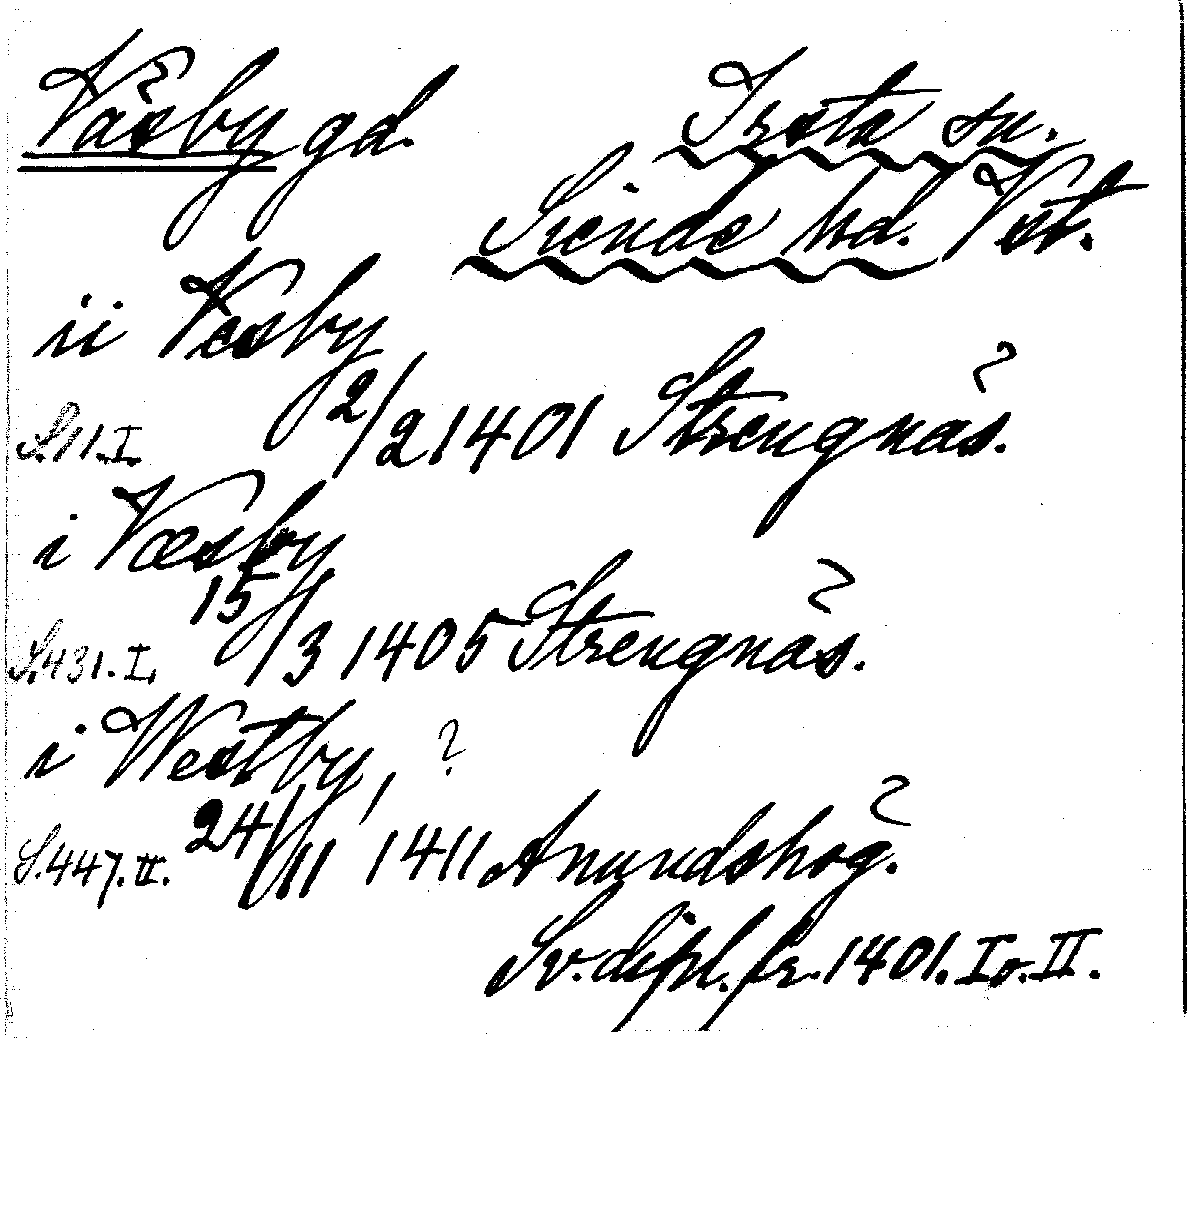 Väsby gd. Irsta sn.
Siende hd. Vst.
ii Vesby
S.11.I. 2/2 1401 Strengnäs.
i Væsby
S.431.I. 15/3 1405 Strengnäs.
i Westby, ?
S.447.II. 24/11 1411 Anundshög.
Sv. dipl. fr. 1401. I o. II.